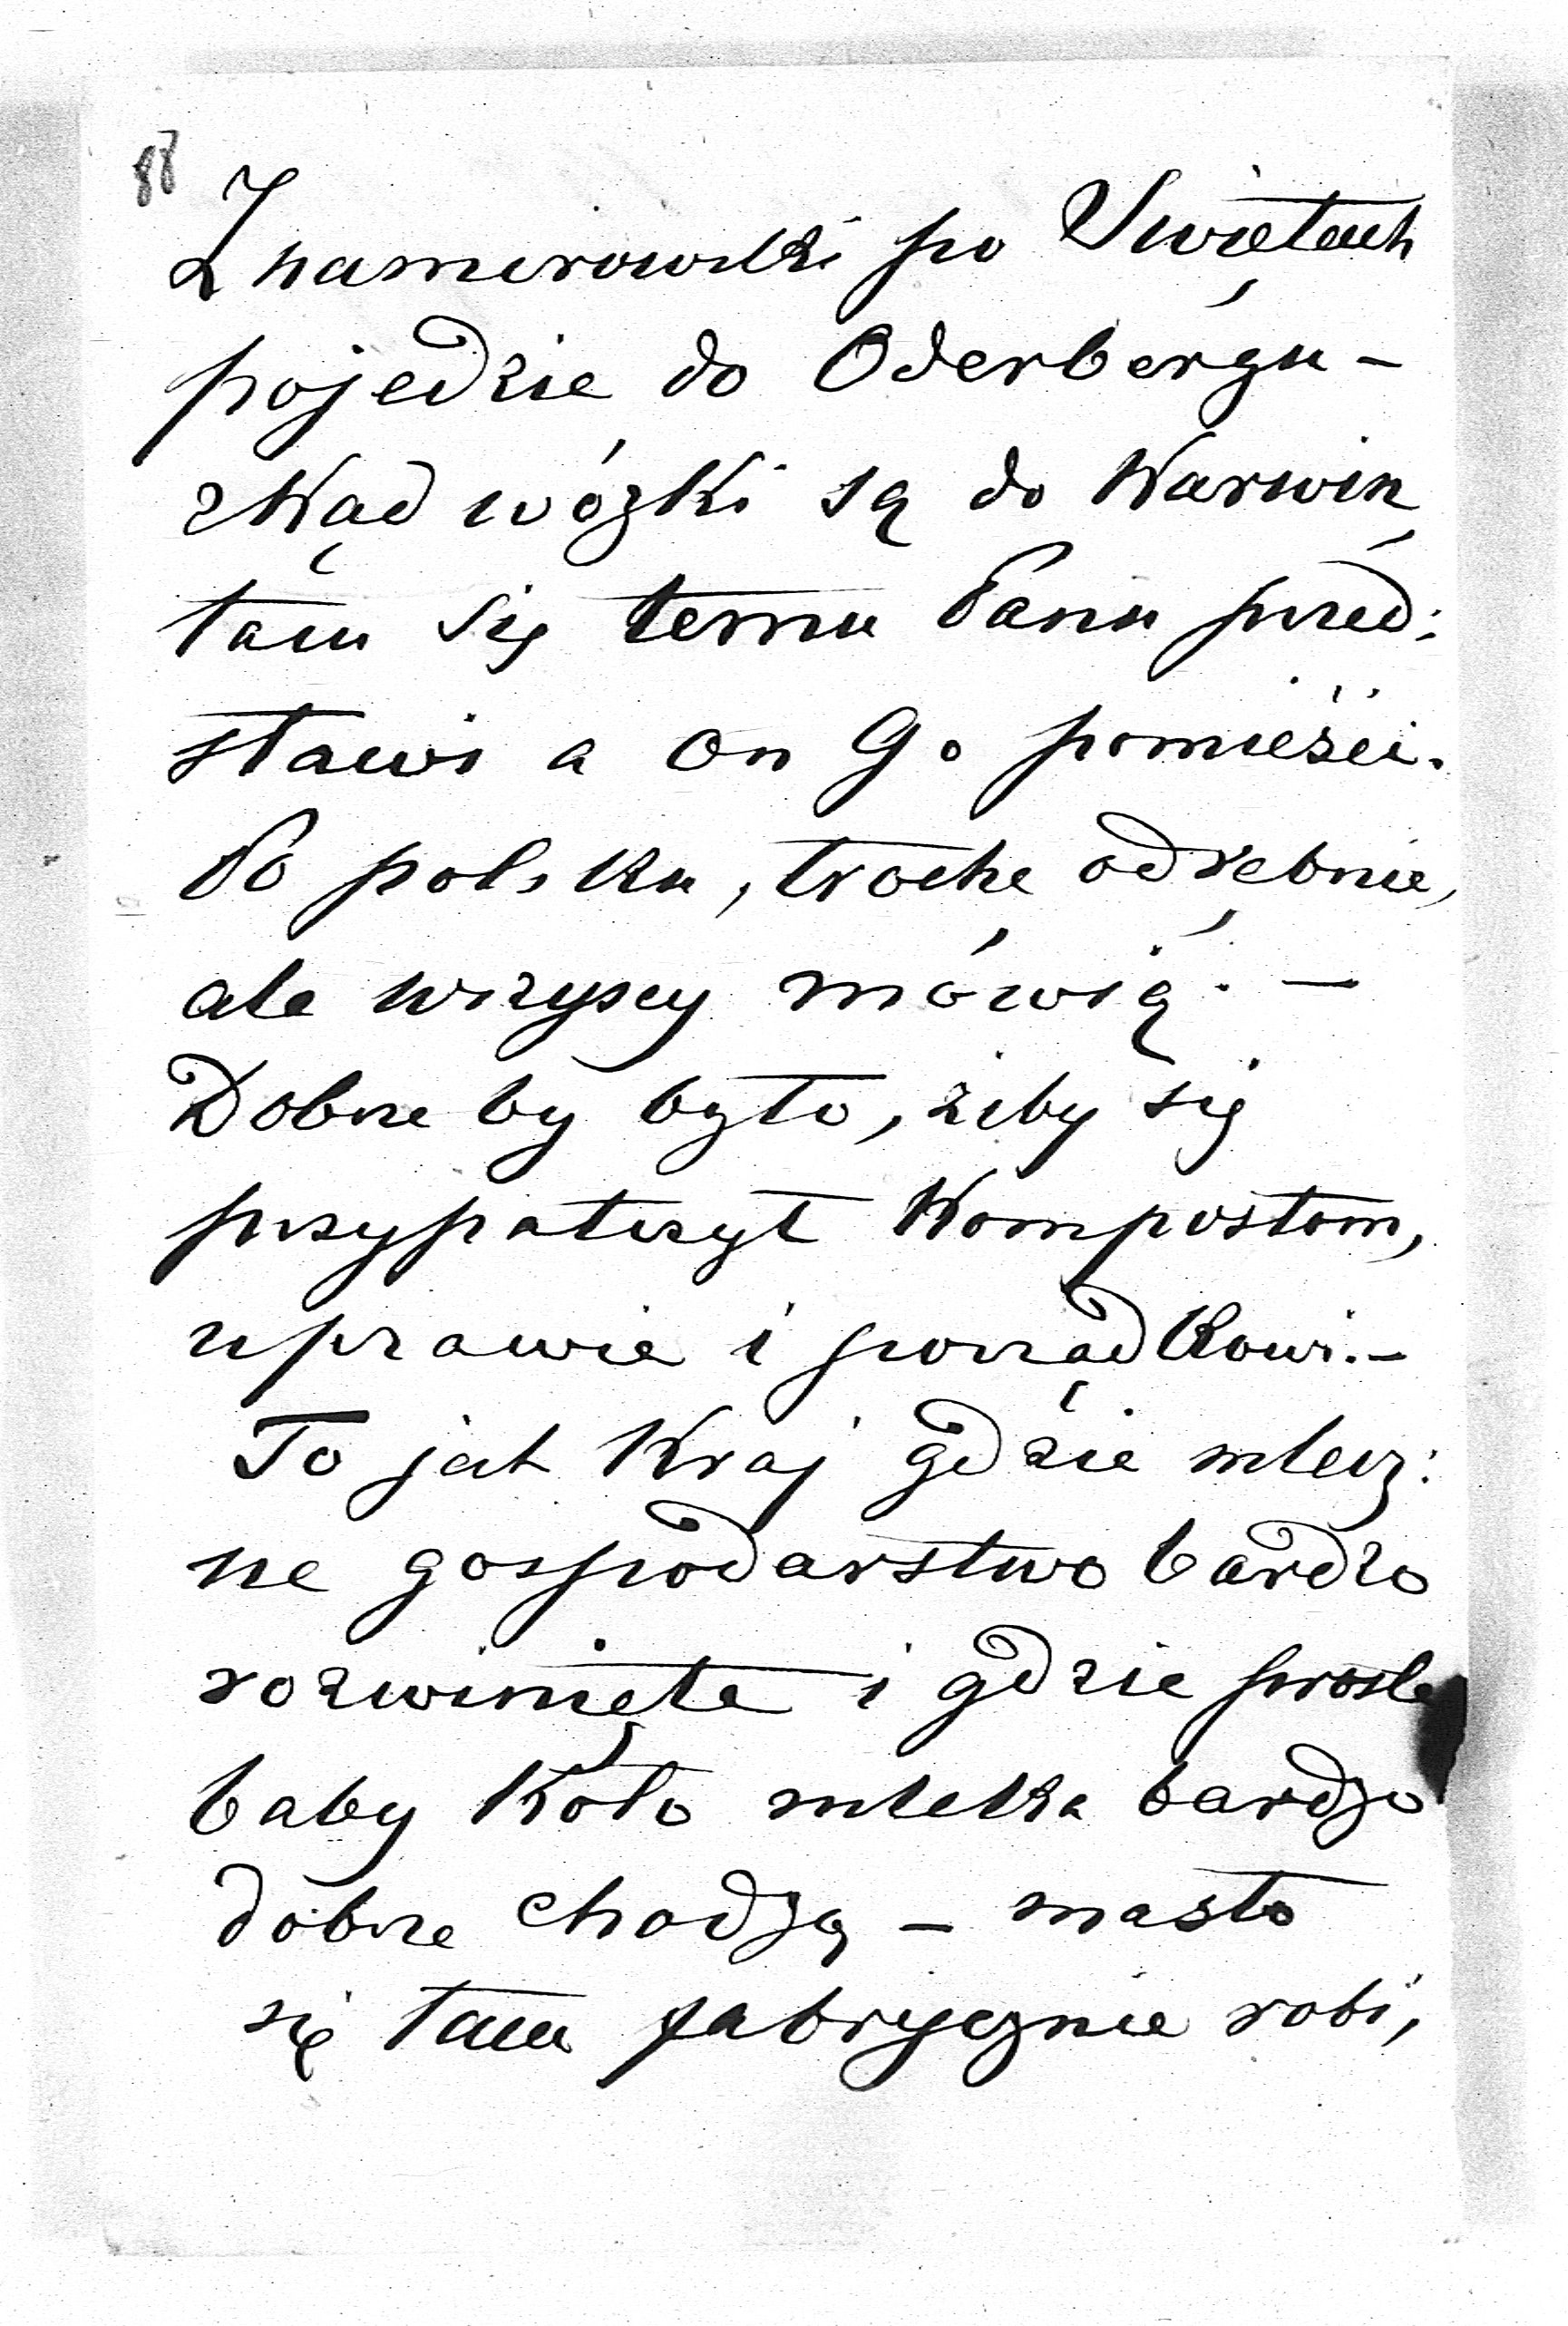 88
Znamirowski po Swiętach
pojedzie do Oderbergu –
zkąd wózki są do Karwin
tam się temu Panu przed:
stawi a on Go pomieści.
Po polsku, trochę odrębnie,
ale wszyscy mówią. –
Dobrze by było, żeby się
przypatrzył Kompostom,
uprawie i porządkowi. –
To jak Kraj gdzie mlecz:
ne gospodarstwo bardzo
rozwinięte i gdzie proste
baby Koło mleka bardzo
dobrze chodzą – masło
się tam fabrycznie robi,